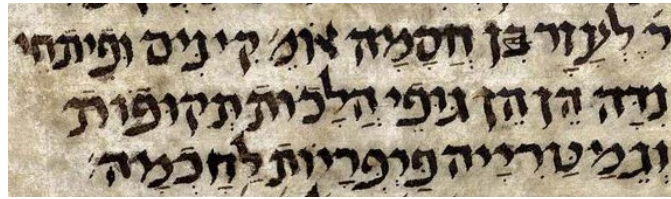 ר' לְעָזָר בֶּן חֲסָמָה אוֹמֵ' קִינִּים וּפִיתְחֵי
נִדָּה הֵן הֵן גּוּפֵי הֲלָכוֹת תְּקוּפוֹת
וְגֵמַטְרִייָה פַּרְפְּרָיוֹת לַחָכְמָה